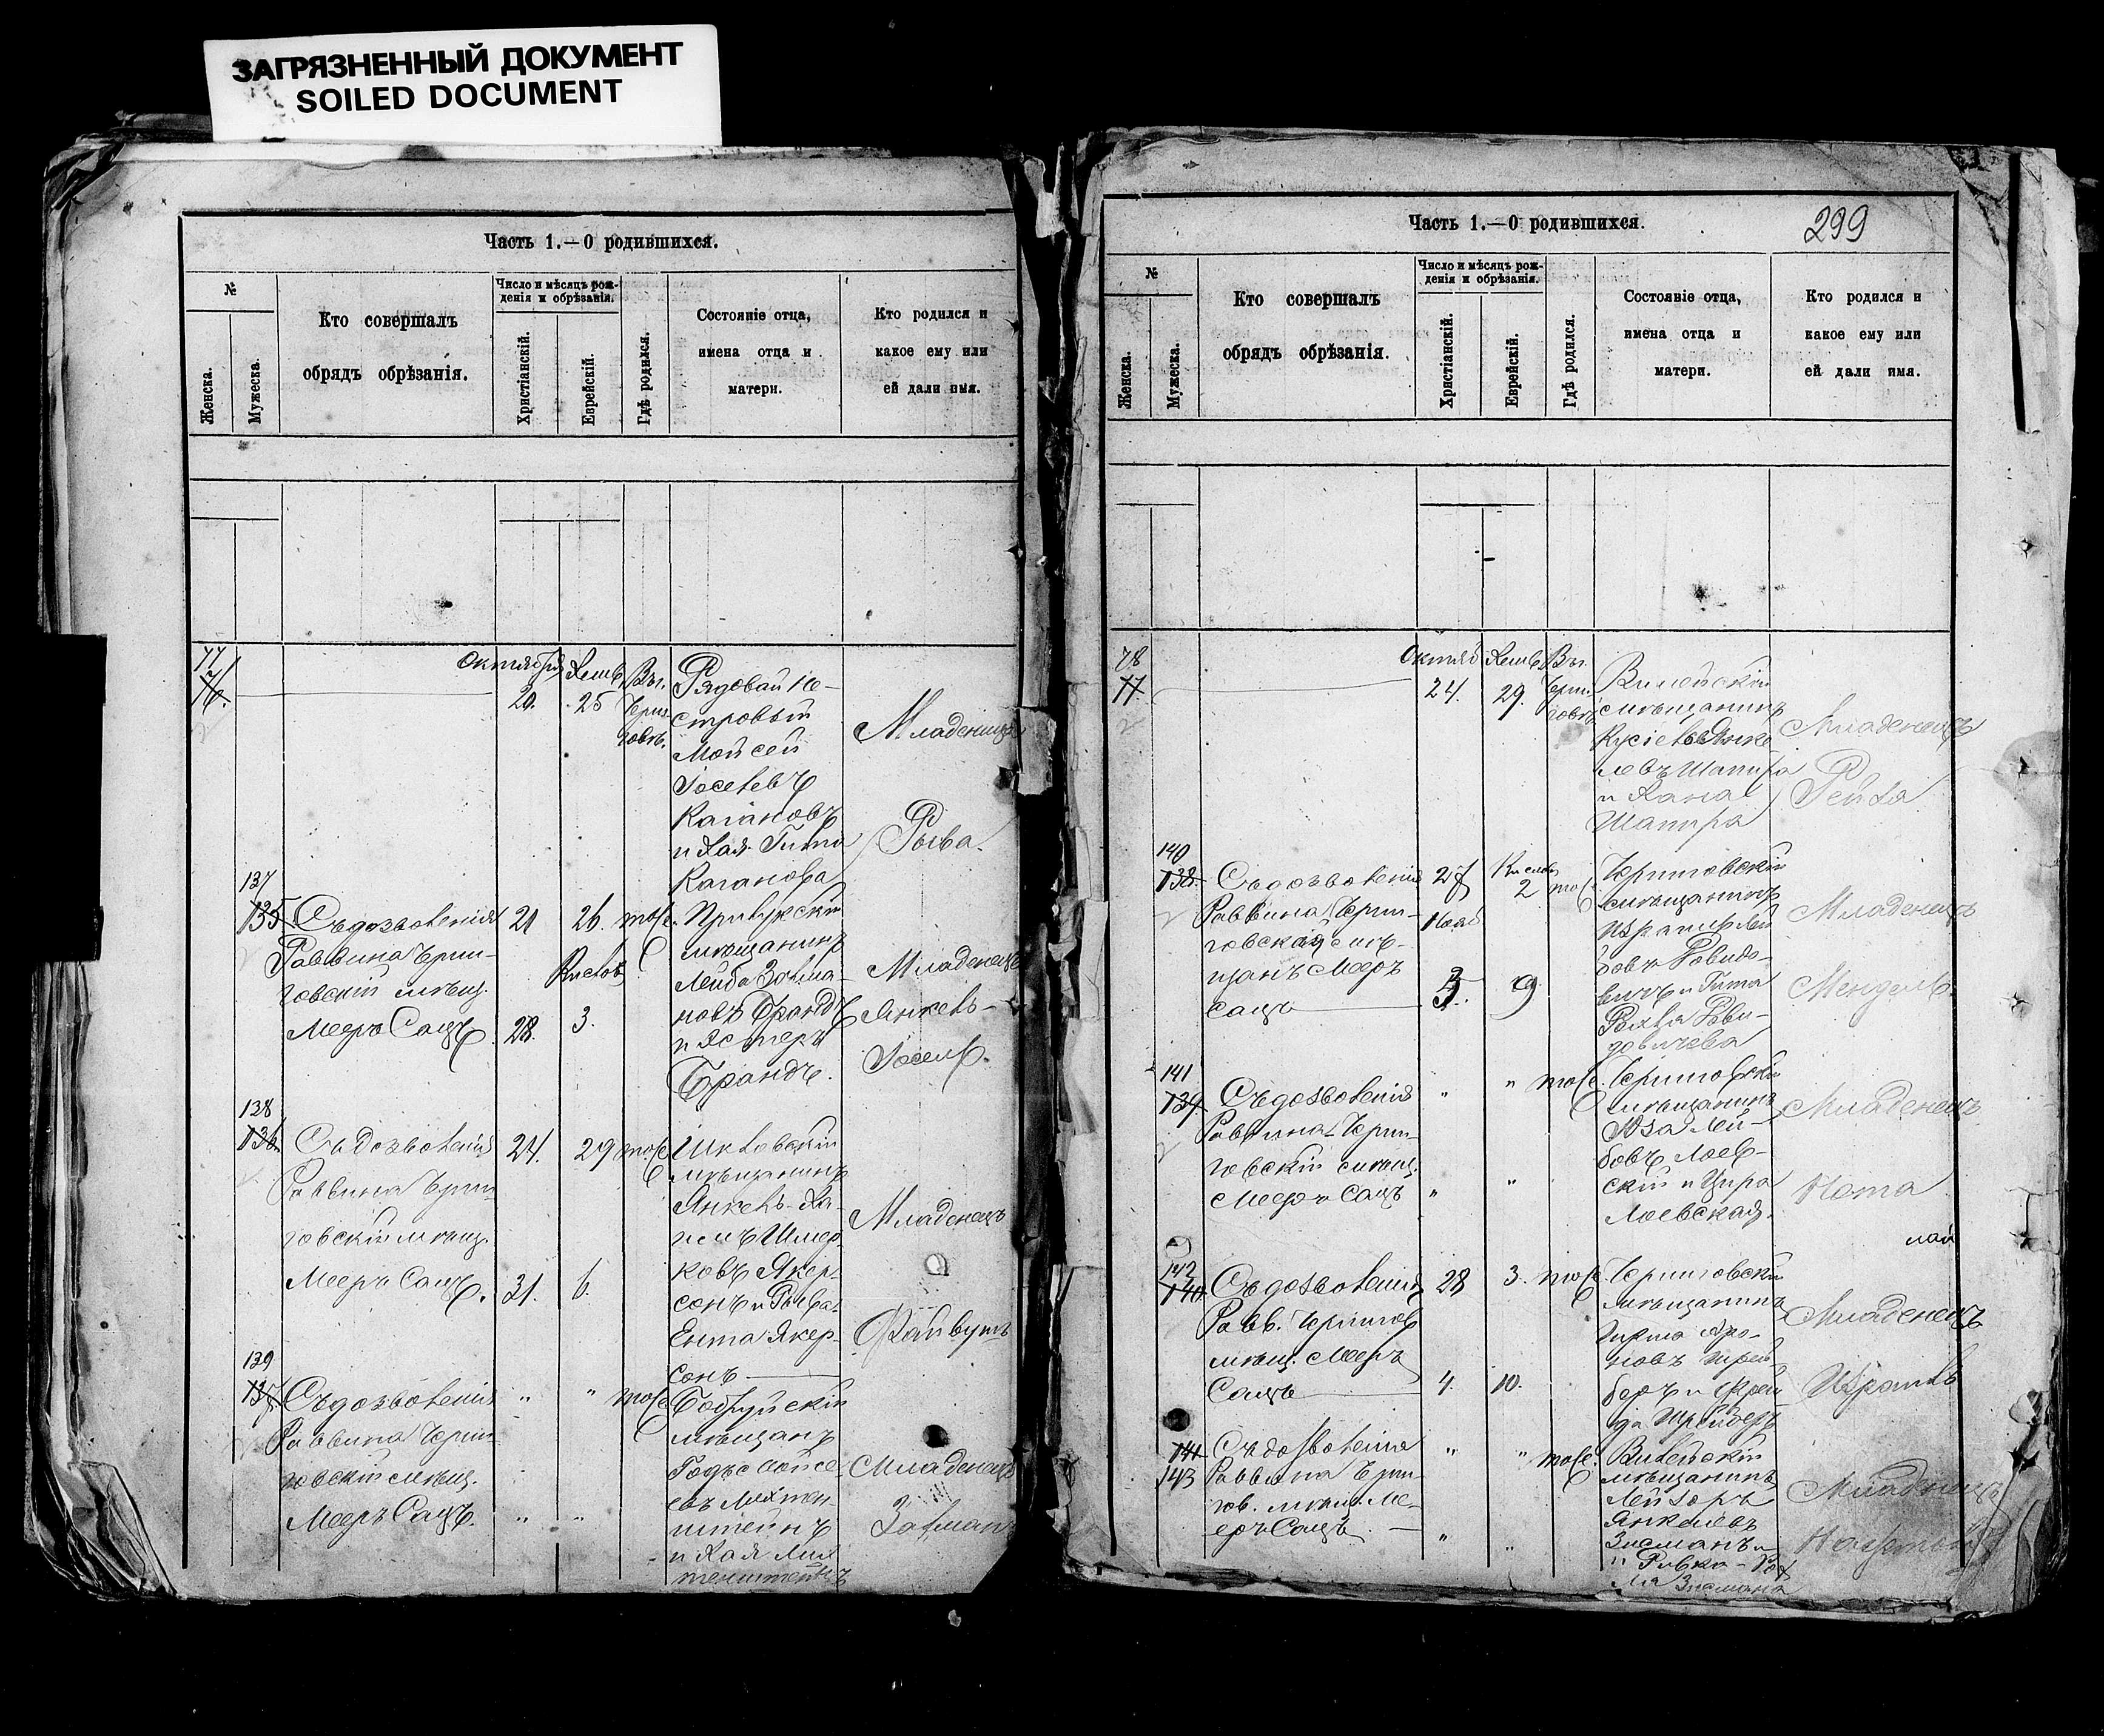 ЗАГРЯЗНЕННЫЙ ДОКУМЕНТ
SOILED DOCUMENT
Часть 1.—О родившихся.
№
Женска.
Мужеска.
Кто совершалъ
обрядъ обрѣзанія.
Число и мѣсяцъ рож-
денія и обрѣзанія.
Христіанскій.
Еврейскій.
Гдѣ родился.
Состояніе отца,
имена отца и
матери.
Кто родился и
какое ему или
ей дали имя.
77
76.
Октября
20.
Хешв.
25
Въ г.
Черни-
говѣ.
Рядовой Не-
строевый
Мойсей
Іоселевъ
Кагановъ
и Хая Гита
Каганова
Младеница
Рыва.
137
135
Съ дозволенія
Раввина Черни-
говскій мѣщ.
Мееръ Сацъ
21
28.
26.
Кислевъ
3.
тоже.
мѣщанинъ
Лейба Залма-
новъ Брандъ
и Эстеръ
Брандъ.
Младенецъ
Янкель-
Іосель.
138
136
Съ дозволенія
Раввина Черни
говскій мѣщ.
Мееръ Сацъ.
24.
31.
29
6.
тоже
Шкловскій
мѣщанинъ
Янкель-Ха-
имъ Шмер-
ковъ Якер-
сонъ и Рыва-
Ента Якер-
сонъ
Младенецъ
Файвушъ
139
137
Съ дозволенія
Раввина Черни-
говскій мѣщ.
Мееръ Сацъ.
"
"
"
"
тоже
Бобруйскій
мѣщан.
Мойсе-
евъ Лихтен-
штейнъ
и Хая Лих
тенштейнъ
Младенецъ
Залманъ
Часть 1.—О родившихся.
299
№
Женска.
Мужеска.
Кто совершалъ
обрядъ обрѣзанія.
Число и мѣсяцъ рож-
денія и обрѣзанія.
Христіанскій.
Еврейскій.
Гдѣ родился.
Состояніе отца,
имена отца и
матери.
Кто родился и
какое ему или
ей дали имя.
78
77
Октяб
24.
Хешв.
29.
Въ г.
Черни-
говѣ
Вилейскій
мѣщанинъ
Янке-
левъ Шапира
и Хана
Шапира
Младенецъ
140
138.
Съ дозволенія
Раввина Черни-
говской мѣ-
щанъ Мееръ
Сацъ
27
Нояб
3.
Кислев
2
9
тоже
Черниговскій
мѣщанинъ
Израиль Лей
бовъ Равидо-
вичъ и Гита
Рави-
довичева
Младенецъ
Мендель.
141
139
Съ дозволенія
Раввина Черни-
говскій мѣщ.
Мееръ Сацъ
"
"
"
"
тоже.
Черниговскій
мѣщанинъ
Лей-
бовъ Лоев-
скій и Цира
Лоевская.
Младенецъ
Нота
142
140
Съ дозволенія
Равв. Чернигов
мѣщ. Мееръ
Сацъ
28
4.
3.
10.
тоже.
Черниговскій
мѣщанинъ
Аро-
новъ Шрей
беръ и Фрей
да Шрейберъ
Младенецъ
Израиль
141
143
Съ дозволенія
Раввина Черни-
гов. мѣщ. Ме-
еръ Сацъ.
"
"
"
"
тоже.
Вилейскій
мѣщанинъ
Лейзеръ
Янкелевъ
Зисманъ
и Ривка-
Зисмана
Младенецъ